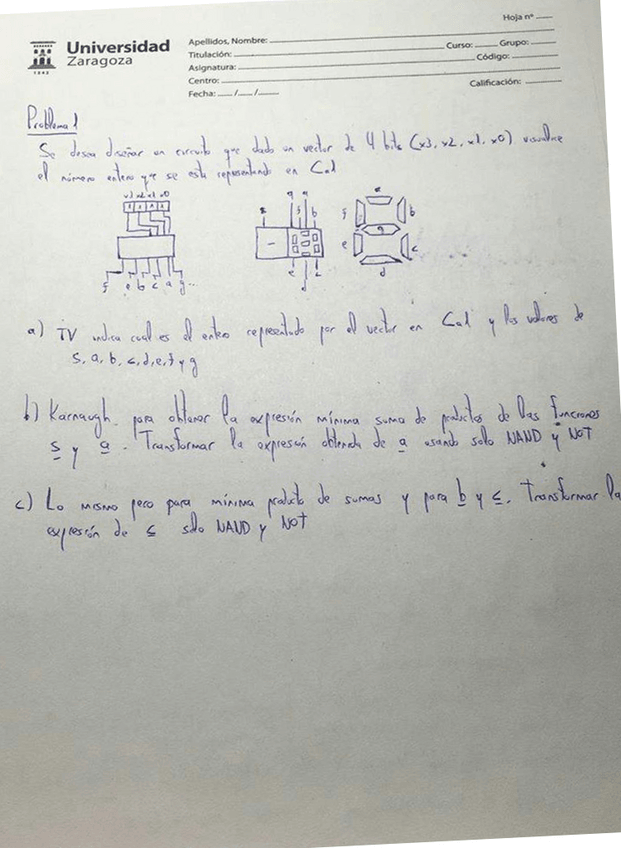 Hoja nº
Universidad
Zaragoza
1542
Apellidos, Nombre:
Titulación: Curso: Grupo:
Asignatura: Código:
Centro:
Fecha: / / Calificación:
Problema 1
Se desea diseñar un circuito que dado un vector de 4 bits (x3, x2, x1, x0) visualice
el número entero que se está representando en Ca1
x3 x2 x1 x0
s g a
f b
e c
d
a
f b
g
e c
d
e b c a g...
a) TV indica cual es el entero representado por el vector en Ca1 y los valores de
s, a, b, c, d, e, f y g
b) Karnaugh para obtener la expresión mínima suma de productos de las funciones
s y a. Transformar la expresión obtenida de a usando solo NAND y NOT
c) Lo mismo pero para mínima producto de sumas y para b y c. Transformar la
expresión de c solo NAND y NOT